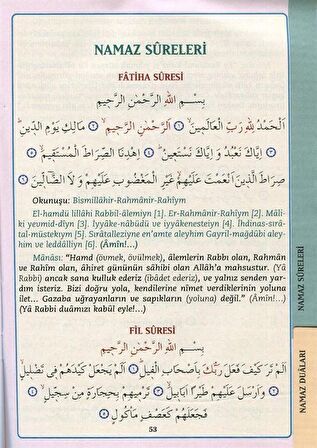 NAMAZ SÛRELERİ
FÂTİHA SÛRESİ
بِسْمِ اللهِ الرَّحْمٰنِ الرَّحِيمِ
اَلْحَمْدُ لِلّٰهِ رَبِّ الْعَالَمِينَ ﴿١﴾ اَلرَّحْمٰنِ الرَّحِيمِ ﴿٢﴾ مَالِكِ يَوْمِ الدِّينِ
﴿٣﴾ اِيَّاكَ نَعْبُدُ وَ اِيَّاكَ نَسْتَعِينُ ﴿٤﴾ اِهْدِنَا الصِّرَاطَ الْمُسْتَقِيمَ ﴿٥﴾
صِرَاطَ الَّذِينَ اَنْعَمْتَ عَلَيْهِمْ غَيْرِ الْمَغْضُوبِ عَلَيْهِمْ وَلَا الضَّالِّينَ ﴿٦﴾
Okunuşu: Bismillâhir-Rahmânir-Rahîym
El-hamdü lillâhi Rabbil-âlemiyn [1]. Er-Rahmânir-Rahîym [2]. Mâli-
ki yevmid-dîyn [3]. İyyâke-nâbüdü ve iyyâkenesteiyn [4]. İhdinas-sırâ-
tal-müstekıym [5]. Sırâtalleziyne en'amte aleyhim Gayril-mağdûbi aley-
him ve leddâlliyn [6]. (Âmîn!...)
Mânâsı: "Hamd (övmek, övülmek), âlemlerin Rabbı olan, Rahmân
ve Rahîm olan, âhiret gününün sâhibi olan Allâh'a mahsustur. (Yâ
Rabbi) ancak sana kulluk ederiz (ibâdet ederiz), ve yalnız senden yar-
dım isteriz. Bizi doğru yola, kendilerine nîmet verdiklerinin yoluna
ilet... Gazaba uğrayanların ve sapıkların (yoluna) değil." (Âmîn!...)
(Yâ Rabbi duâmızı kabûl eyle!...)
FİL SÛRESİ
بِسْمِ اللهِ الرَّحْمٰنِ الرَّحِيمِ
اَلَمْ تَرَ كَيْفَ فَعَلَ رَبُّكَ بِاَصْحَابِ الْفِيلِ ﴿١﴾ اَلَمْ يَجْعَلْ كَيْدَهُمْ فِى تَضْلِيلٍ
﴿٢﴾ وَاَرْسَلَ عَلَيْهِمْ طَيْرًا اَبَابِيلَ ﴿٣﴾ تَرْمِيهِمْ بِحِجَارَةٍ مِنْ سِجِّيلٍ ﴿٤﴾
فَجَعَلَهُمْ كَعَصْفٍ مَاْكُولٍ ﴿٥﴾
53
NAMAZ SÛRELERİ
NAMAZ DUÂLARI